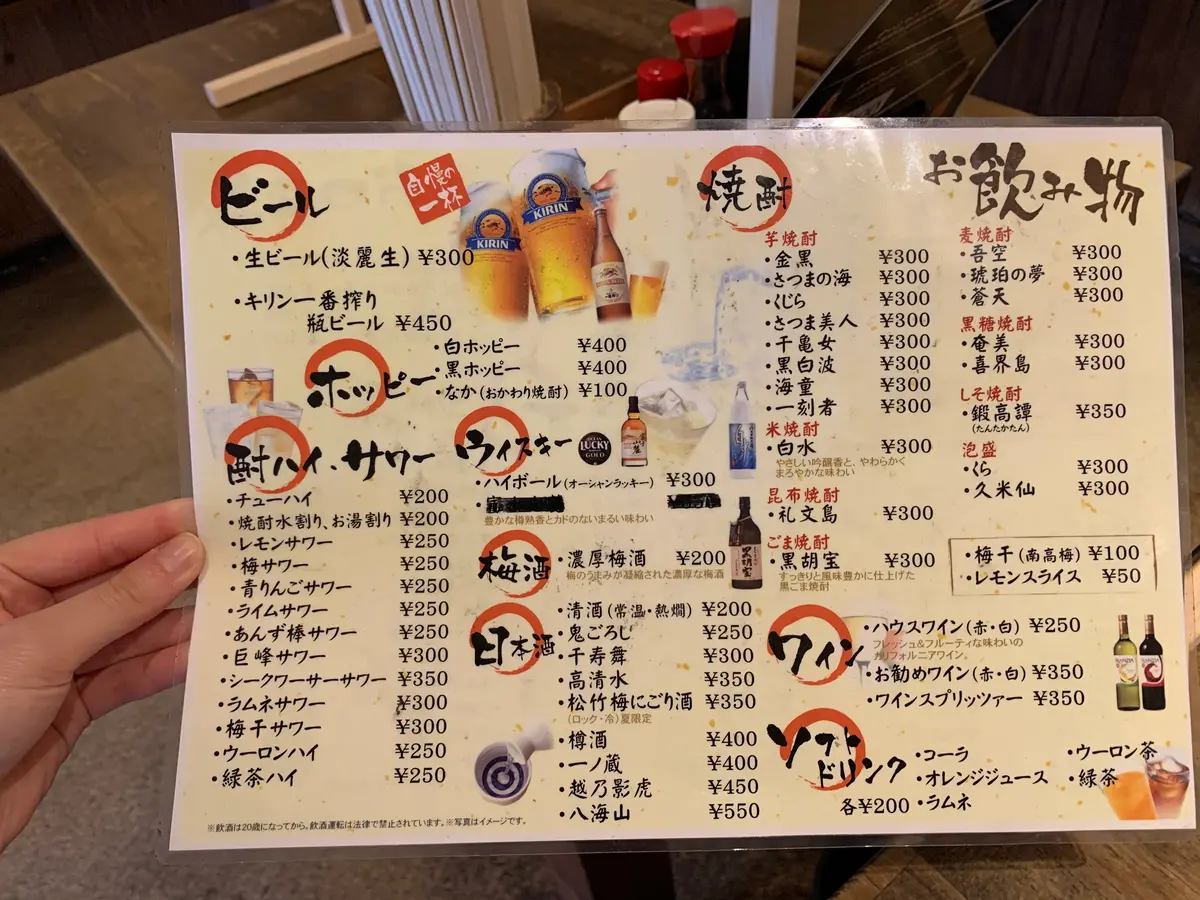 お飲み物
ビール
自慢の一杯
KIRIN
KIRIN
・生ビール(淡麗生) ¥300
・キリン一番搾り
瓶ビール ¥450
ホッピー
・白ホッピー ¥400
・黒ホッピー ¥400
・なか(おかわり焼酎) ¥100
酎ハイ、サワー
・チューハイ ¥200
・焼酎水割り、お湯割り ¥200
・レモンサワー ¥250
・梅サワー ¥250
・青りんごサワー ¥250
・ライムサワー ¥250
・あんず棒サワー ¥250
・巨峰サワー ¥300
・シークワーサーサワー ¥350
・ラムネサワー ¥300
・梅干サワー ¥300
・ウーロンハイ ¥250
・緑茶ハイ ¥250
ウィスキー
LUCKY
GOLD
・ハイボール(オーシャンラッキー) ¥300
豊かな樽熟香とカドのないまるい味わい
梅酒
・濃厚梅酒 ¥200
梅のうまみが凝縮された濃厚な梅酒
日本酒
・清酒(常温・熱燗) ¥200
・鬼ごろし ¥250
・千寿舞 ¥300
・高清水 ¥350
・松竹梅にごり酒 ¥350
(ロック・冷)夏限定
・樽酒 ¥400
・一ノ蔵 ¥400
・越乃影虎 ¥450
・八海山 ¥550
焼酎
芋焼酎
・金黒 ¥300
・さつまの海 ¥300
・くじら ¥300
・さつま美人 ¥300
・千亀女 ¥300
・黒白波 ¥300
・海童 ¥300
・一刻者 ¥300
米焼酎
・白水 ¥300
やさしい吟醸香と、やわらかく
まろやかな味わい
昆布焼酎
・礼文島 ¥300
ごま焼酎
・黒胡宝 ¥300
すっきりと風味豊かに仕上げた
黒ごま焼酎
麦焼酎
・吾空 ¥300
・琥珀の夢 ¥300
・蒼天 ¥300
黒糖焼酎
・奄美 ¥300
・喜界島 ¥300
しそ焼酎
・鍛高譚 ¥350
(たんたかたん)
泡盛
・くら ¥300
・久米仙 ¥300
・梅干(南高梅) ¥100
・レモンスライス ¥50
ワイン
・ハウスワイン(赤・白) ¥250
フレッシュ&フルーティな味わいの
カリフォルニアワイン。
・お勧めワイン(赤・白) ¥350
・ワインスプリッツァー ¥350
ソフトドリンク
各¥200
・コーラ
・オレンジジュース
・ラムネ
・ウーロン茶
・緑茶
※飲酒は20歳になってから、飲酒運転は法律で禁止されています。※写真はイメージです。